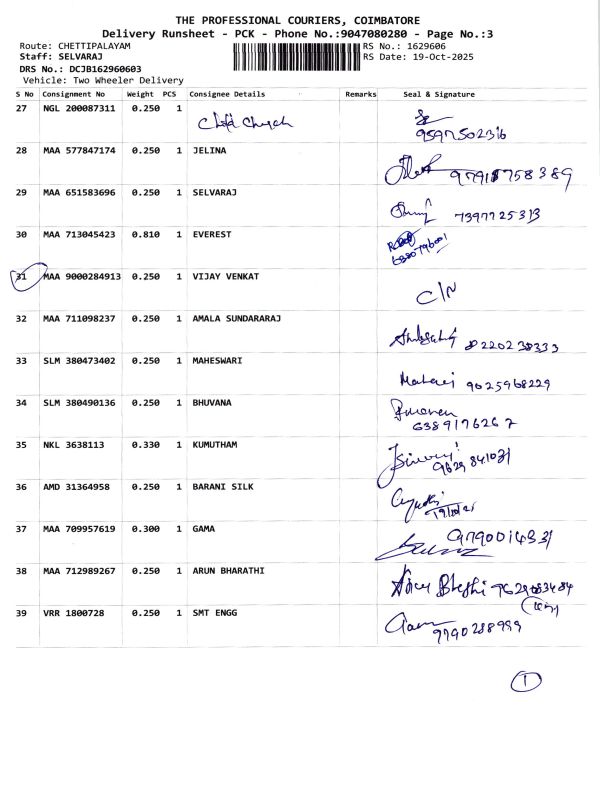 THE PROFESSIONAL COURIERS, COIMBATORE
Delivery Runsheet - PCK - Phone No.:9047080280 - Page No.:3
Route: CHETTIPALAYAM RS No.: 1629606
Staff: SELVARAJ RS Date: 19-Oct-2025
DRS No.: DCJB162960603
Vehicle: Two Wheeler Delivery
S No Consignment No Weight PCS Consignee Details Remarks Seal & Signature
27 NGL 200087311 0.250 1
9597502316
28 MAA 577847174 0.250 1 JELINA
29 MAA 651583696 0.250 1 SELVARAJ
7397725313
30 MAA 713045423 0.810 1 EVEREST
31 MAA 9000284913 0.250 1 VIJAY VENKAT
C/N
32 MAA 711098237 0.250 1 AMALA SUNDARARAJ
8220238333
33 SLM 380473402 0.250 1 MAHESWARI
9025968229
34 SLM 380490136 0.250 1 BHUVANA
6389176267
35 NKL 3638113 0.330 1 KUMUTHAM
36 AMD 31364958 0.250 1 BARANI SILK
19/10/25
37 MAA 709957619 0.300 1 GAMA
38 MAA 712989267 0.250 1 ARUN BHARATHI
39 VRR 1800728 0.250 1 SMT ENGG
9790288999
1